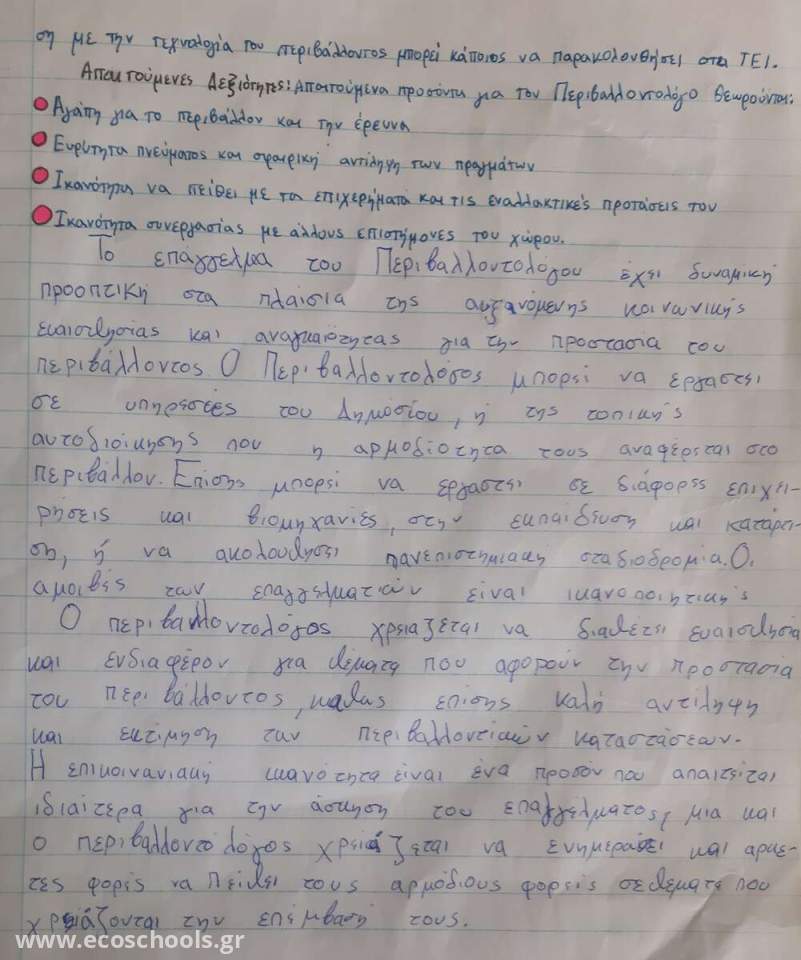 ση με την τεχνολογία του περιβάλλοντος μπορεί κάποιος να παρακολουθήσει στα ΤΕΙ.
Απαιτούμενες Δεξιότητες: Απαιτούμενα προσόντα για τον Περιβαλλοντολόγο θεωρούνται:
Αγάπη για το περιβάλλον και την έρευνα
Ευρύτητα πνεύματος και σφαιρική αντίληψη των πραγμάτων
Ικανότητα να πείθει με τα επιχειρήματα και τις εναλλακτικές προτάσεις του
Ικανότητα συνεργασίας με άλλους επιστήμονες του χώρου.
Το επάγγελμα του Περιβαλλοντολόγου έχει δυναμική
προοπτική στα πλαίσια της αυξανόμενης κοινωνικής
ευαισθησίας και αναγκαιότητας για την προστασία του
περιβάλλοντος Ο Περιβαλλοντολόγος μπορεί να εργαστεί
σε υπηρεσίες του Δημοσίου, ή της τοπικής
αυτοδιοίκησης που η αρμοδιότητα τους αναφέρεται στο
περιβάλλον. Επίσης μπορεί να εργαστεί σε διάφορες επιχει-
ρήσεις και βιομηχανίες, στην εκπαίδευση και κατάρτι-
ση, ή να ακολουθήσει πανεπιστημιακή σταδιοδρομία. Οι
αμοιβές των επαγγελματιών είναι ικανοποιητικής
Ο περιβαλλοντολόγος χρειάζεται να διαθέτει ευαισθησία
και ενδιαφέρον για θέματα που αφορούν την προστασία
του περιβάλλοντος, καθώς επίσης καλή αντίληψη
και εκτίμηση των περιβαλλοντικών καταστάσεων.
Η επικοινωνιακή ικανότητα είναι ένα προσόν που απαιτείται
ιδιαίτερα για την άσκηση του επαγγέλματος, μια και
ο περιβαλλοντολόγος χρειάζεται να ενημερώσει και αρκε-
τες φορές να πείθει τους αρμόδιους φορείς σε θέματα που
χρειάζονται την επέμβασή τους.
www.ecoschools.gr